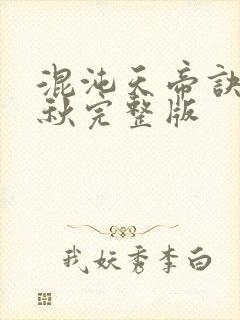 混沌天帝诀
秋完整版
我妖秀李白